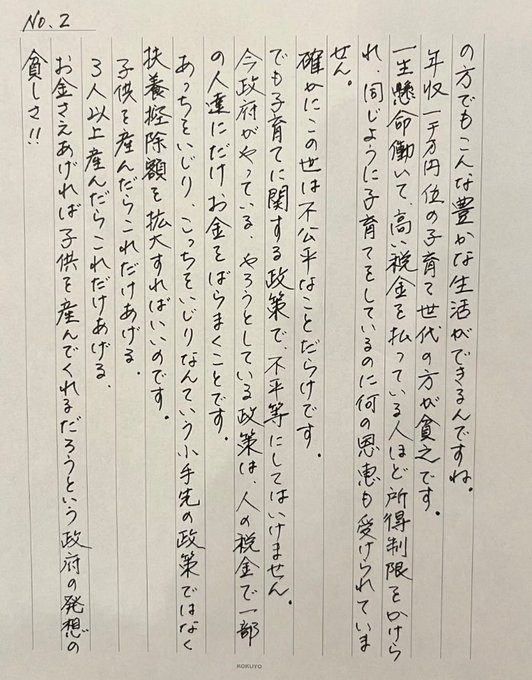 No.2
の方でもこんな豊かな生活ができるんですね。
年収一千万円位の子育て世代の方が貧乏です。
一生懸命働いて、高い税金を払っている人ほど所得制限をかけら
れ、同じように子育てをしているのに何の恩恵も受けられていま
せん。
確かにこの世は不公平なことだらけです。
でも子育てに関する政策で、不平等にしてはいけません。
今政府がやっている、やろうとしている政策は、人の税金で一部
の人達にだけお金をばらまくことです。
あっちをいじり、こっちをいじりなんていう小手先の政策ではなく
扶養控除額を拡大すればいいのです。
子供を産んだらこれだけあげる、
3人以上産んだらこれだけあげる、
お金さえあげれば子供を産んでくれるだろうという政府の発想の
貧しさ!!
KOKUYO